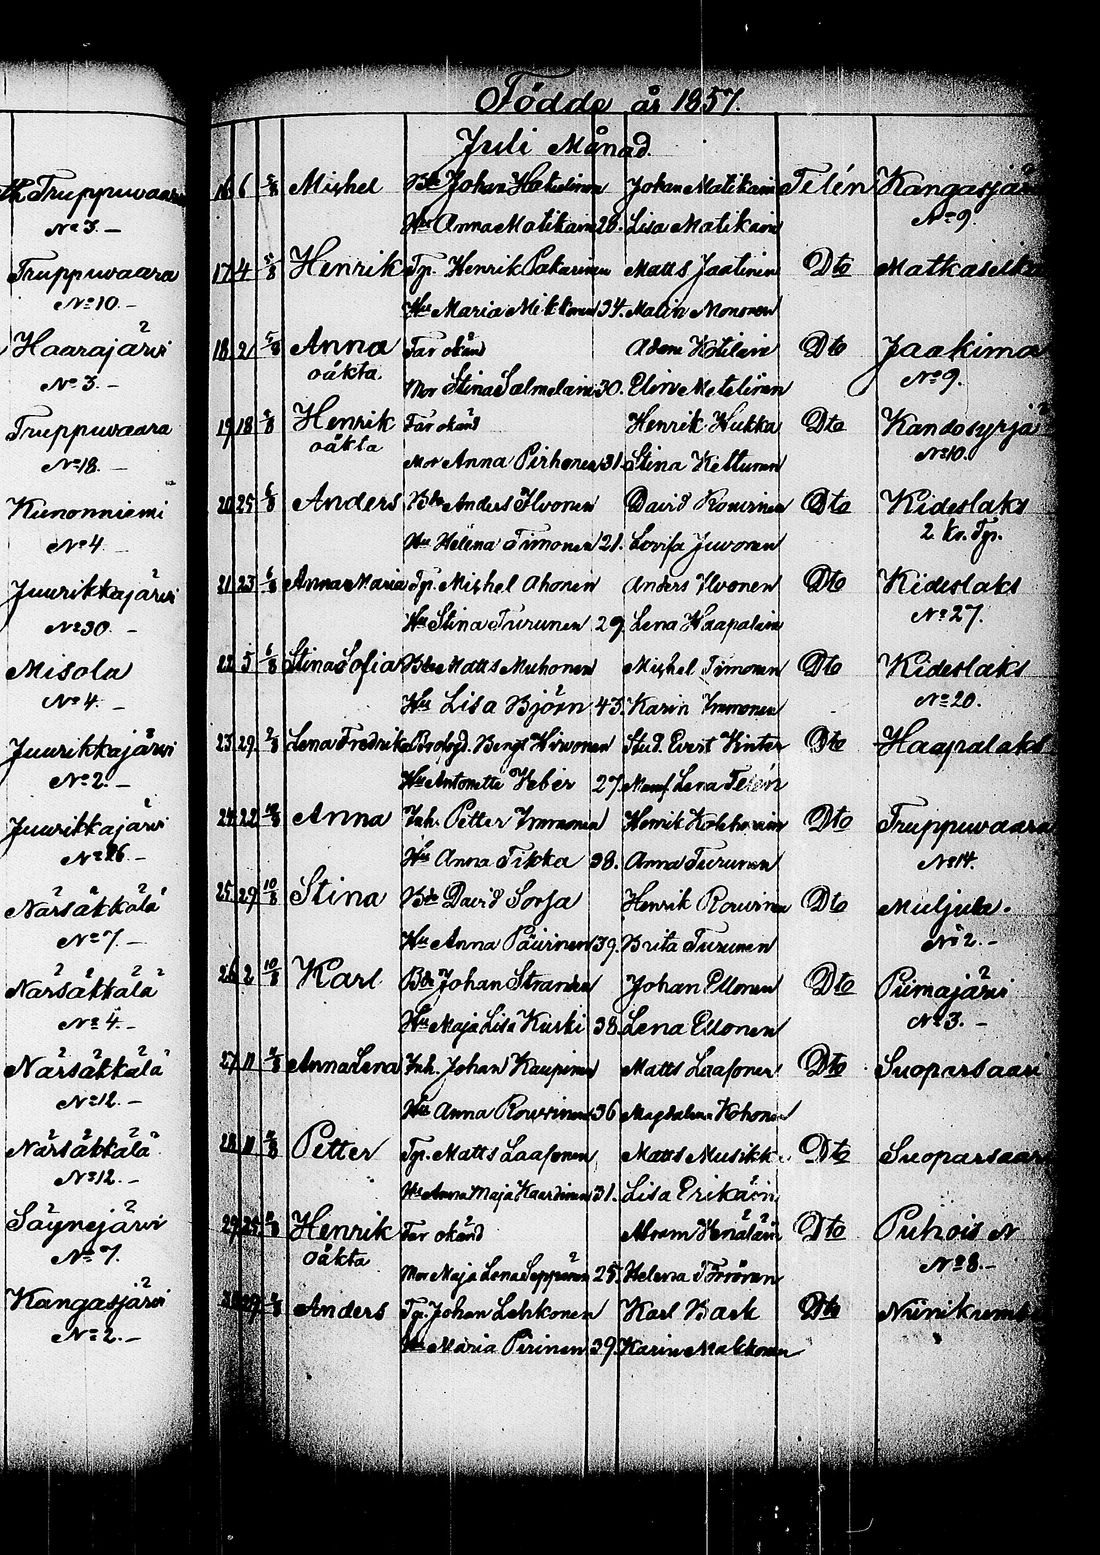 th Truppuvaara
No 3. –
Truppuvaara
No 10. –
Haarajärvi
No 3. –
Truppuvaara
No 18. –
Kunonniemi
No 4. –
Juurikkajärvi
No 30. –
Misola
No 4. –
Juurikkajärvi
No 2. –
Juurikkajärvi
No 26. –
Närsäkkälä
No 7. –
Närsäkkälä
No 4. –
Närsäkkälä
No 12. –
Närsäkkälä
No 12. –
Säynejärvi
No 7.
Kangasjärvi
No 2. –
Födde år 1857.
Juli Månad.
16 6 5/8 Mishel Bde Johan Hakulinen Johan Matikain Telén Kangasjärvi
Hu Anna Matikain 28. Lisa Matikain No 9.
17 4 5/8 Henrik Tp. Henrik Pakarinen Matts Jaatinen Dto Matkaselkä
Hu Maria Mikkonen 34. Malin Mononen
18 21 5/8 Anna Far okänd Adam Kotilain Dto Jaakima
oäkta. Mor Stina Salmelain 30. Elin Meteliinen No 9.
19 18 Henrik Far okänd Henrik Hukka Dto Kandosyrjä
oäkta Mor Anna Pirhonen 31. Stina Ketturen No 10.
20 25 6/8 Anders Bde Anders Ilvonen David Rouvinen Dto Kideslaks
Hu Helena Timonen 21. Lovisa Juvonen 2. Kr. Tp.
21 23 Anna Maria Tp. Mishel Ahonen Anders Ilvonen Dto Kideslaks
Hu Stina Turunen 29. Lena Haapalain No 27.
22 5 Stina Sofia Bde Matts Muhonen Mishel Timonen Dto Kideslaks
Hu Lisa Björn 43. Karin Immonen No 20.
23 29 Lena Fredrika Bengt Hirvonen Stud. Evert Winter Dto Haapalaks
Hu Antonette Heber 27. Mamf. Lena Telén
24 22 Anna Inh. Petter Immonen Henrik Dto Truppuvaara
Hu Anna Tikka 38. Anna Turunen No 14.
25. 29 10/8 Stina Bde David Sorsa Henrik Rouvinen Dto Muljula.
Hu Anna Päivinen 39. Brita Turunen No 2. –
26 2 10/8 Karl Bde Johan Strandn Johan Ellonen Dto Piimajärvi
Hu Maja Lisa Kurki 38. Lena Ellonen No 3. –
27 11 Anna Lena Inh. Johan Kaupinen Matts Laasonen Dto Suoparsaari
Hu Anna Rouvinen 36 Magdalena Kohonen
28 11 Petter Tp. Matts Laasonen Matts Musikk Dto Suoparsaari
Hu Anna Maja Kaardinen 31. Lisa Erikäin
29 25 Henrik Far okänd Abram Henäläin Dto Puhois N
oäkta Mor Maja Lena Seppänen 25. Helena Törrönen No 8. –
Anders Tp. Johan Lehkonen Karl Back Dto Niinikum
Hu Maria Pirinen 39. Karin Makkonen